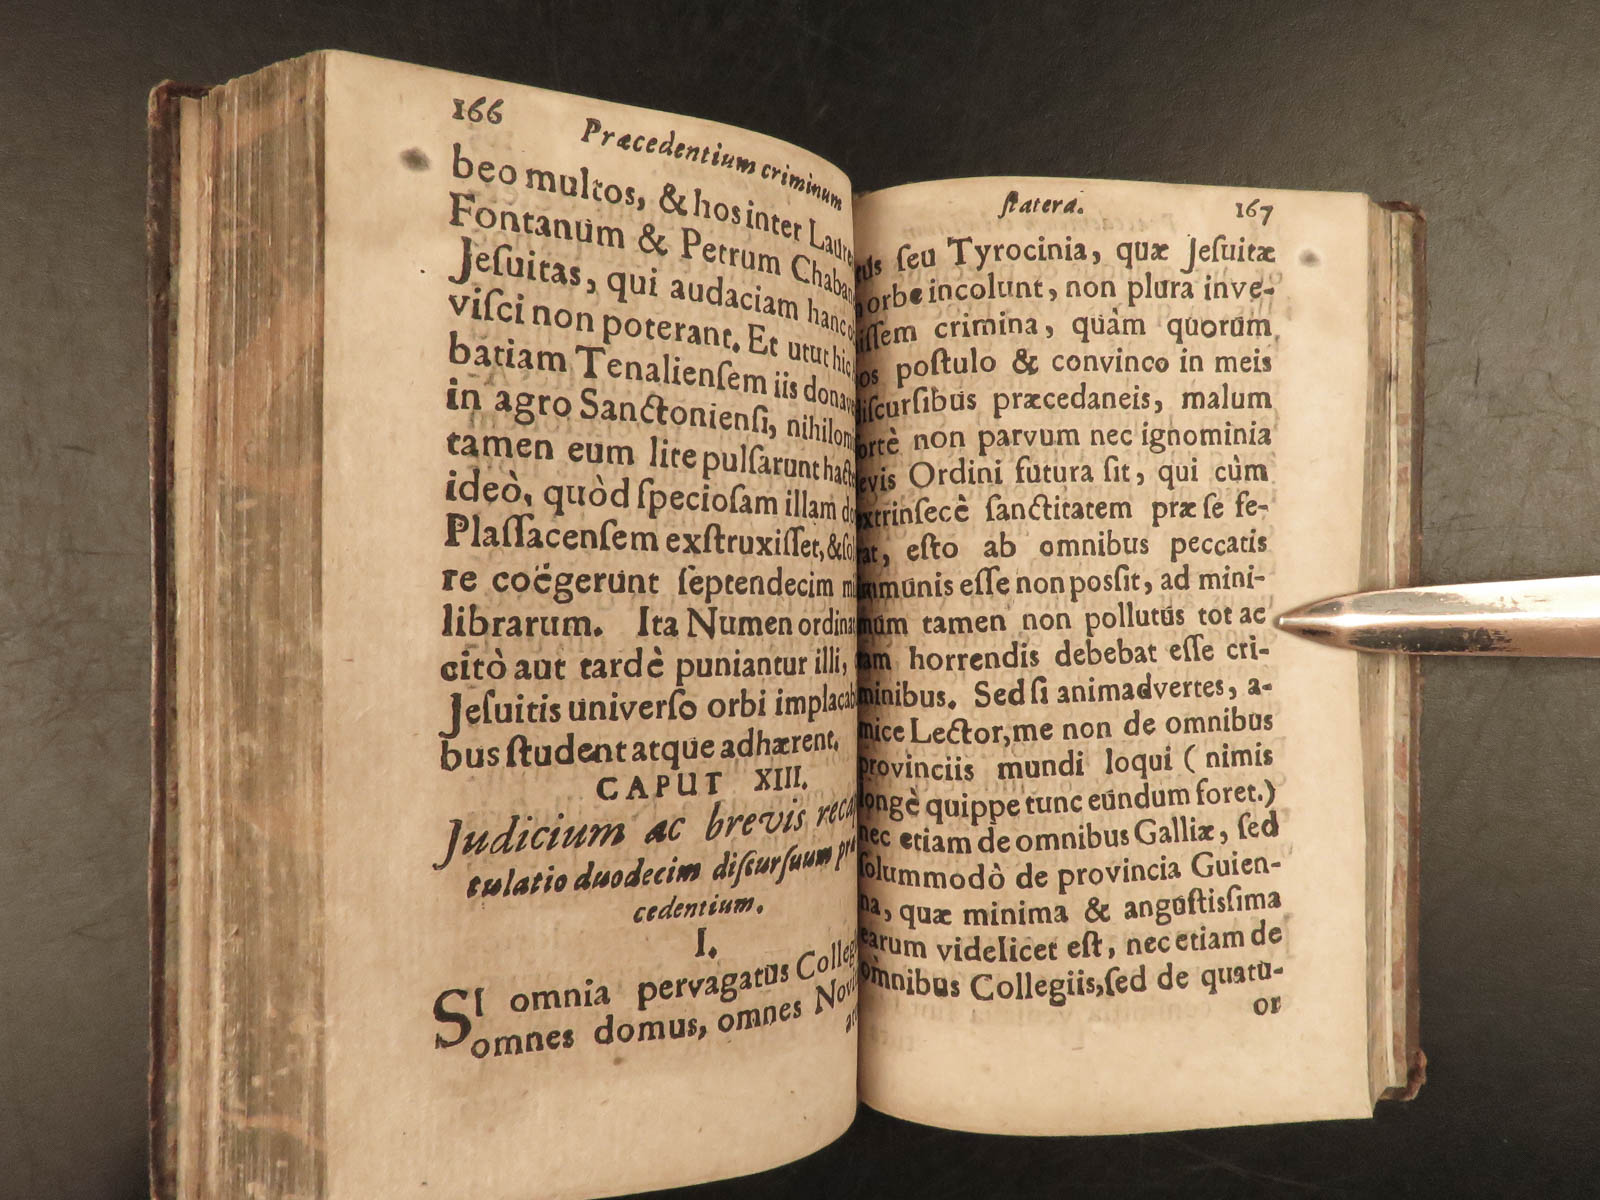 166
Præcedentium criminum
beo multos, & hos inter Laure
Fontanum & Petrum Chaban
Jeſuitas, qui audaciam hanc
viſci non poterant. Et utut hic
batiam Tenalienſem iis donav
in agro Sanctonienſi, nihilom
tamen eum lite pulſarunt hact
ideò, quòd ſpecioſam illam do
Plaſſacenſem exſtruxiſſet, & ſol
re coëgerunt ſeptendecim m
librarum. Ita Numen ordina
citò aut tardè puniantur illi,
Jeſuitis univerſo orbi implacab
bus ſtudent atque adhærent.
CAPUT XIII.
Judicium ac brevis reca
tulatio duodecim diſcurſuum præ
cedentium.
I.
SI omnia pervagatus Colleg
omnes domus, omnes Novi
ſtatera.
167
tus ſeu Tyrocinia, quæ Jeſuitæ
orbe incolunt, non plura inve-
iſſem crimina, quàm quorum
os poſtulo & convinco in meis
diſcurſibus præcedaneis, malum
fortè non parvum nec ignominia
levis Ordini futura ſit, qui cùm
extrinſecè ſanctitatem præ ſe fe-
rat, eſto ab omnibus peccatis
immunis eſſe non poſſit, ad mini-
mum tamen non pollutus tot ac
tam horrendis debebat eſſe cri-
minibus. Sed ſi animadvertes, a-
mice Lector, me non de omnibus
provinciis mundi loqui ( nimis
longè quippe tunc eundum foret.)
nec etiam de omnibus Galliæ, ſed
ſolummodò de provincia Guien-
na, quæ minima & anguſtiſſima
earum videlicet eſt, nec etiam de
omnibus Collegiis, ſed de quatu-
or